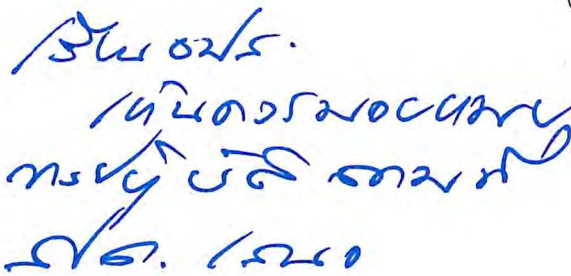 เรียน อปส.
เห็นควรมอบหมาย
การปฏิบัติ ตามที่
เสนอ